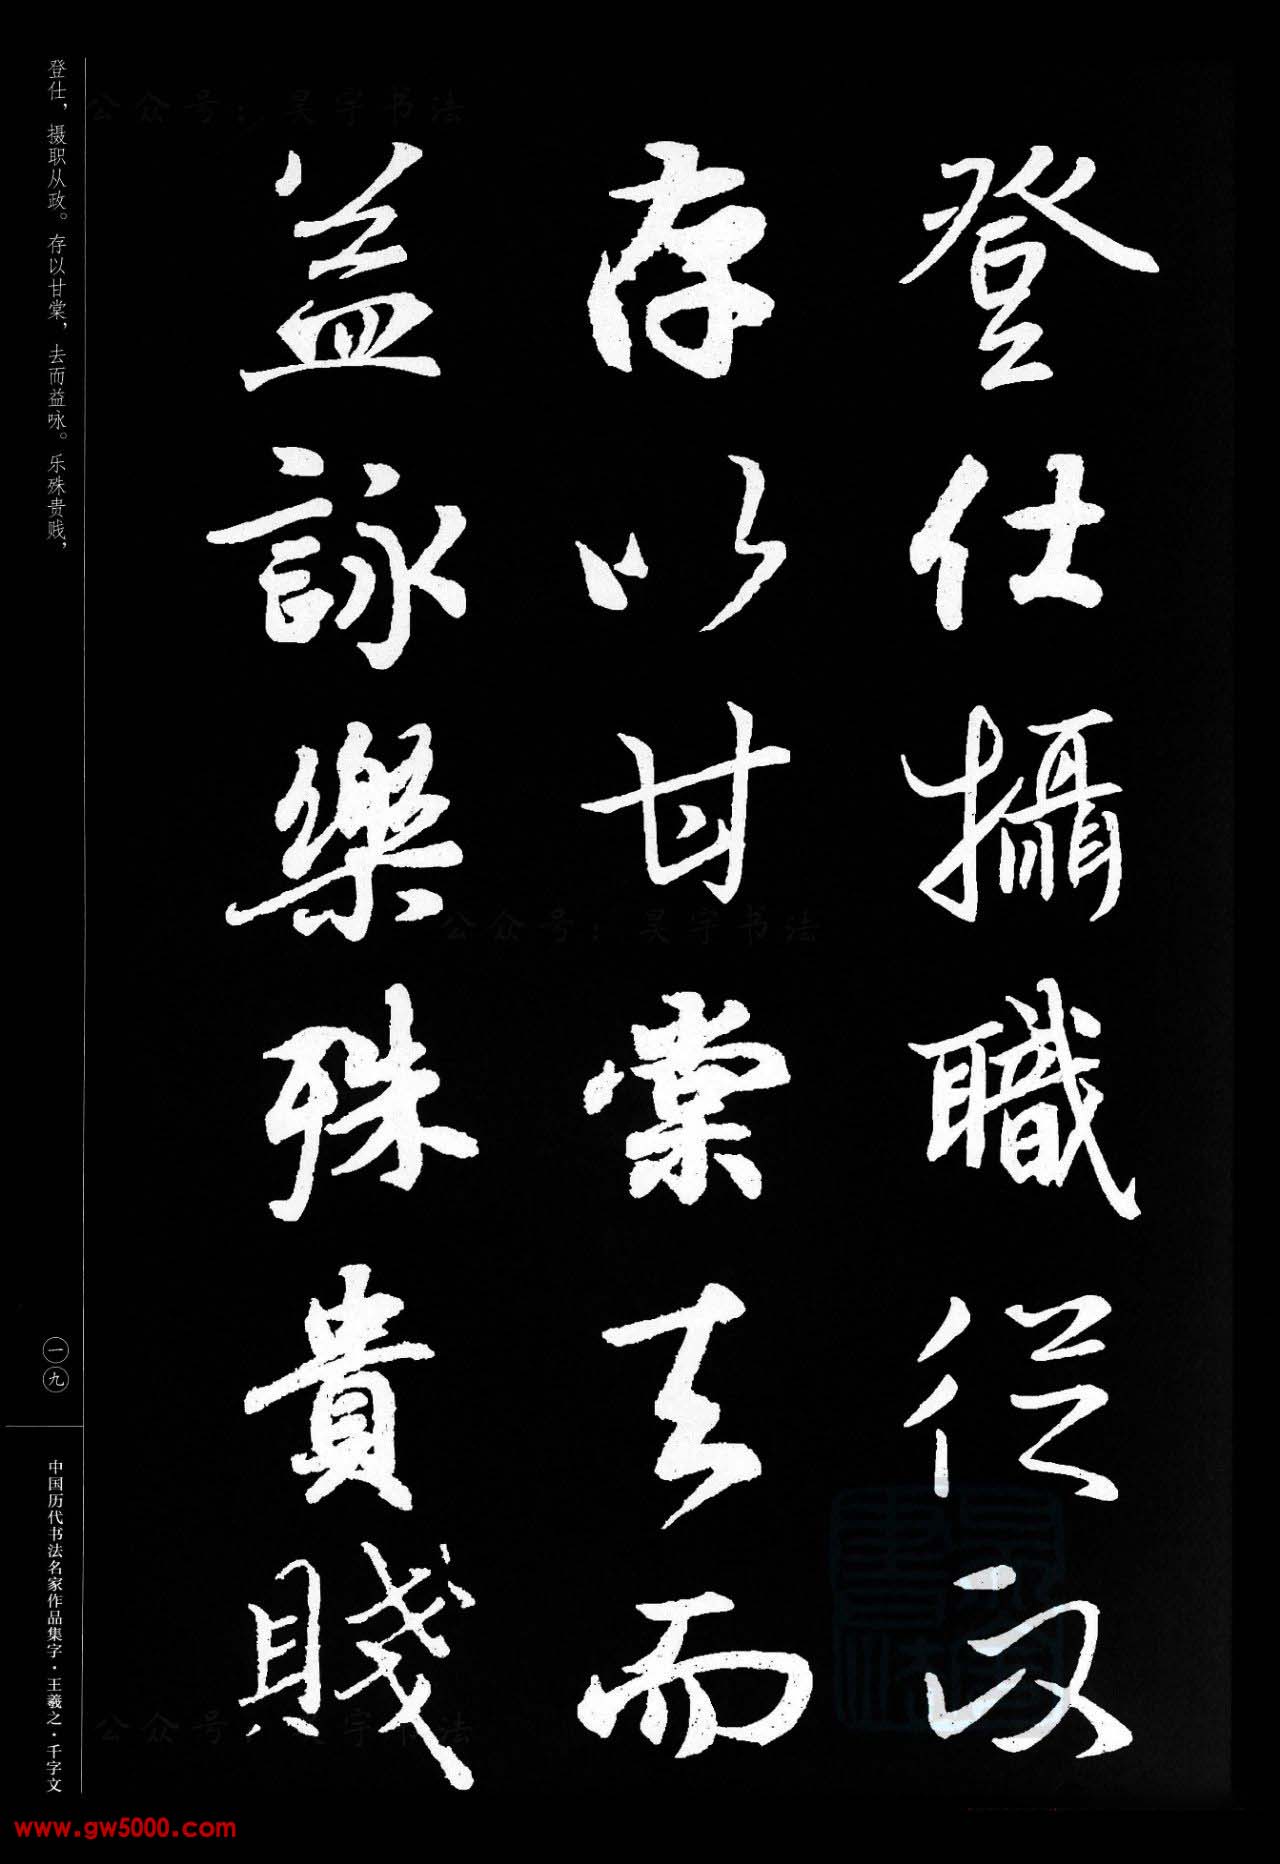 登仕攝職從政
存以甘棠去而
益詠樂殊貴賤
登仕，摄职从政。存以甘棠，去而益咏。乐殊贵贱，
一九
中国历代书法名家作品集字·王羲之·千字文
公众号：昊宇书法
公众号：昊宇书法
公众号：昊宇书法
www.gw5000.com